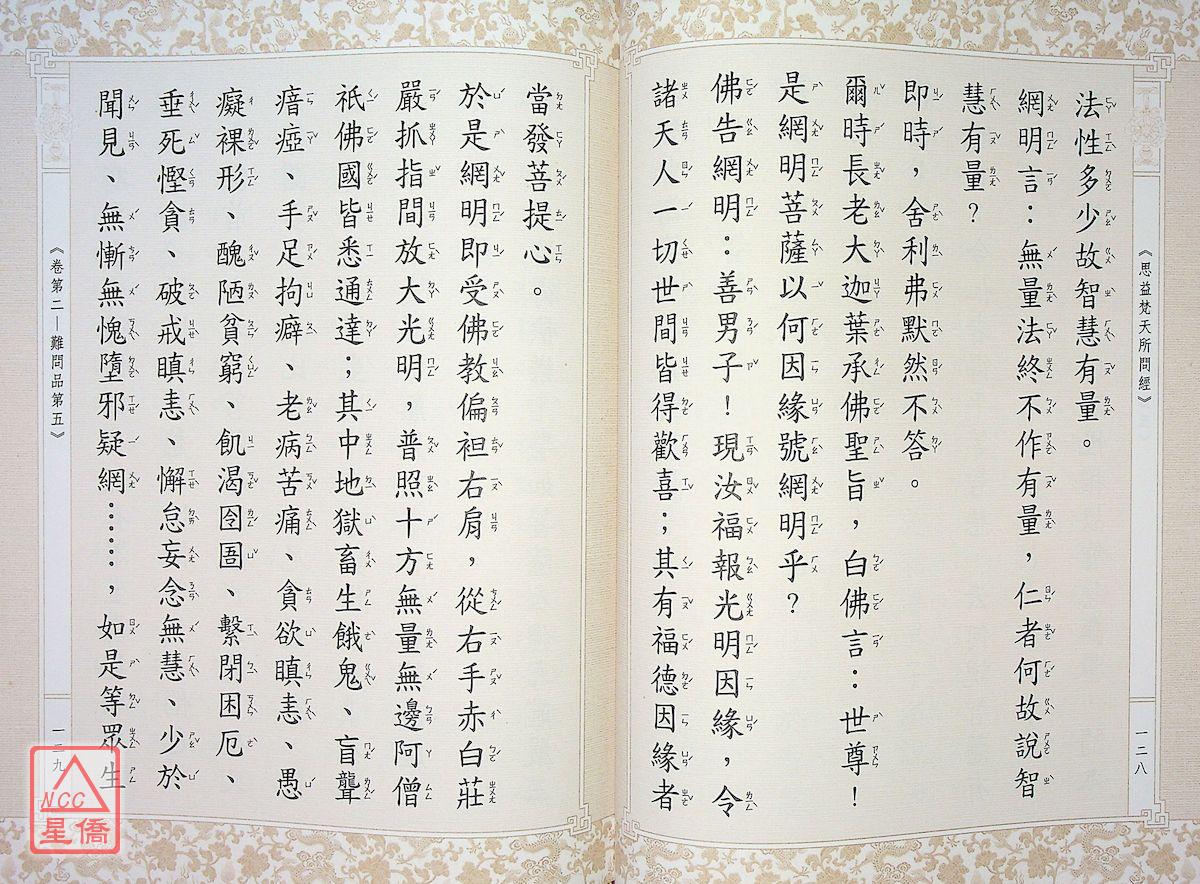 《思益梵天所問經》
一二八
法性多少故智慧有量。
網明言：無量法終不作有量，仁者何故說智
慧有量？
即時，舍利弗默然不答。
爾時長老大迦葉承佛聖旨，白佛言：世尊！
是網明菩薩以何因緣號網明乎？
佛告網明：善男子！現汝福報光明因緣，令
諸天人一切世間皆得歡喜；其有福德因緣者
當發菩提心。
於是網明即受佛教偏袒右肩，從右手赤白莊
嚴抓指間放大光明，普照十方無量無邊阿僧
祇佛國皆悉通達；其中地獄畜生餓鬼、盲聾
瘖瘂、手足拘癖、老病苦痛、貪欲瞋恚、愚
癡裸形、醜陋貧窮、飢渴囹圄、繫閉困厄、
垂死慳貪、破戒瞋恚、懈怠妄念無慧、少於
聞見、無慚無愧墮邪疑網……，如是等眾生
《卷第二—難問品第五》
一二九
NCC
星僑